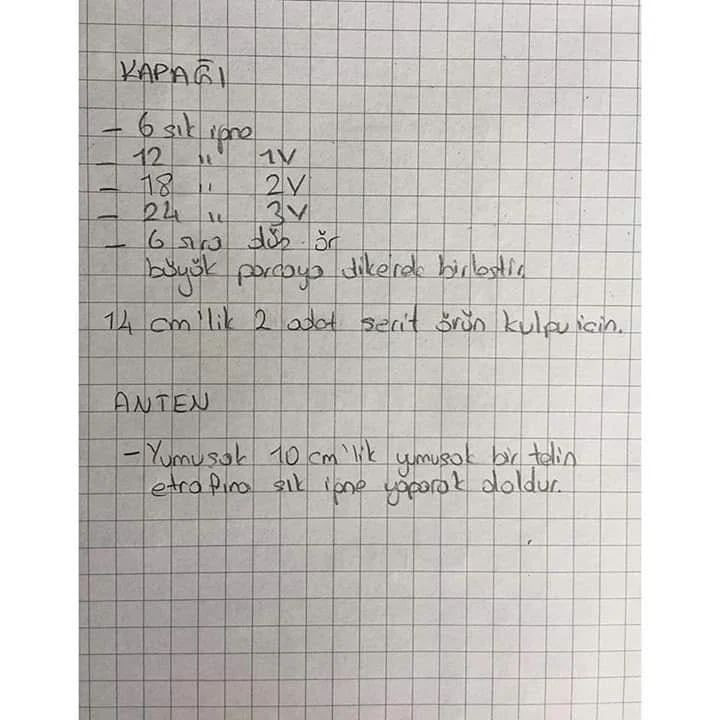 KAPAĞI
- 6 sık iğne
- 12 " 1V
- 18 " 2V
- 24 " 3V
- 6 sıra düz ör
büyük parçaya dikerek birleştir.
14 cm'lik 2 adet şerit örün kulpu için.
ANTEN
- Yumuşak 10 cm'lik yumuşak bir telin
etrafına sık iğne yaparak doldur.